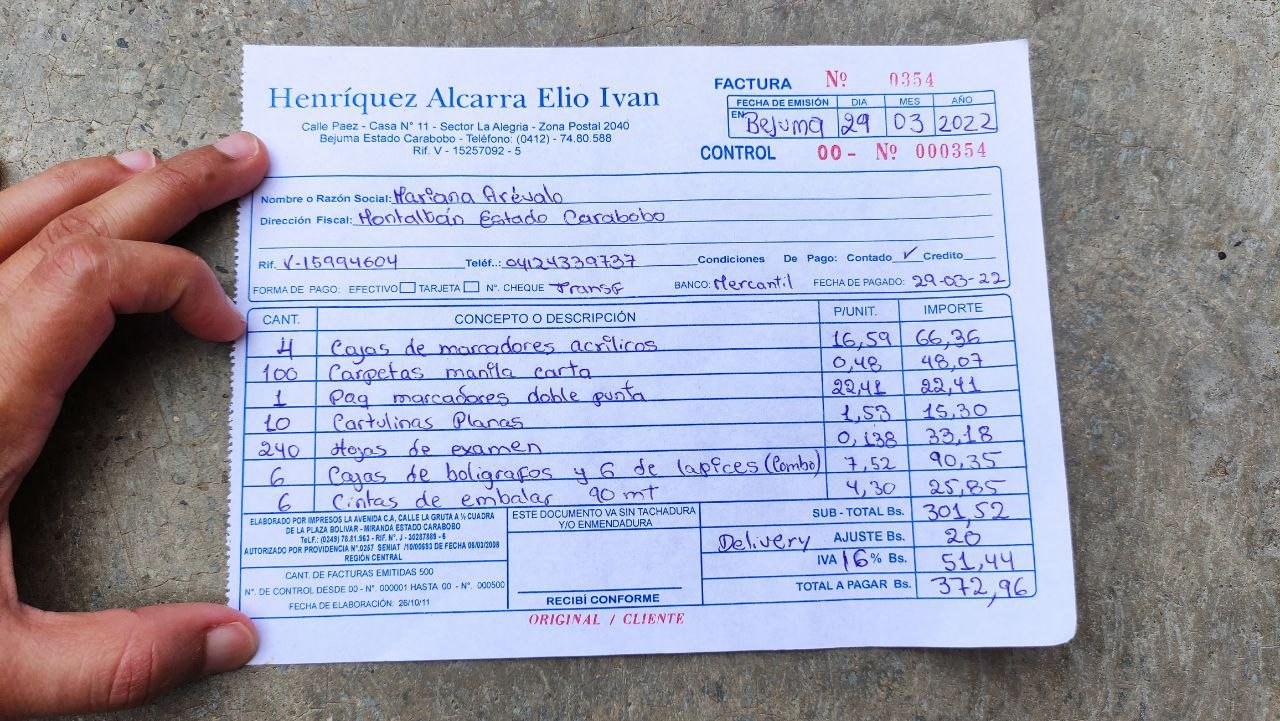 Henríquez Alcarra Elio Ivan
Calle Paez - Casa N° 11 - Sector La Alegria - Zona Postal 2040
Bejuma Estado Carabobo - Teléfono: (0412) - 74.80.588
Rif. V - 15257092 - 5
FACTURA Nº 0354
FECHA DE EMISIÓN DIA MES AÑO
EN: Bejuma 29 03 2022
CONTROL 00 - Nº 000354
Nombre o Razón Social: Mariana Arévalo
Dirección Fiscal: Montalbán Estado Carabobo
Rif. V-15994604 Teléf.: 04124339737 Condiciones De Pago: Contado ✓ Credito
FORMA DE PAGO: EFECTIVO TARJETA N°. CHEQUE Transf BANCO: Mercantil FECHA DE PAGADO: 29-03-22
CANT. CONCEPTO O DESCRIPCIÓN P/UNIT. IMPORTE
4 Cajas de marcadores acrilicos 16,59 66,36
100 Carpetas manila carta 0,48 48,07
1 Paq marcadores doble punta 22,41 22,41
10 Cartulinas Planas 1,53 15,30
240 Hojas de examen 0,138 33,18
6 Cajas de boligrafos y 6 de lapices (Combo) 7,52 90,35
6 Cintas de embalar 90 mt 4,30 25,85
ELABORADO POR IMPRESOS LA AVENIDA C.A, CALLE LA GRUTA A ½ CUADRA
DE LA PLAZA BOLIVAR - MIRANDA ESTADO CARABOBO
TeLF.: (0249) 78.81.963 - RIF. N°. J - 30287889 - 6
AUTORIZADO POR PROVIDENCIA N°.0257 SENIAT /10/00693 DE FECHA 06/03/2008
REGIÓN CENTRAL
CANT. DE FACTURAS EMITIDAS 500
N°. DE CONTROL DESDE 00 - N°. 000001 HASTA 00 - N°. 000500
FECHA DE ELABORACIÓN: 26/10/11
ESTE DOCUMENTO VA SIN TACHADURA
Y/O ENMENDADURA
RECIBÍ CONFORME
SUB - TOTAL Bs. 301,52
Delivery AJUSTE Bs. 20
IVA 16 % Bs. 51,44
TOTAL A PAGAR Bs. 372,96
ORIGINAL / CLIENTE